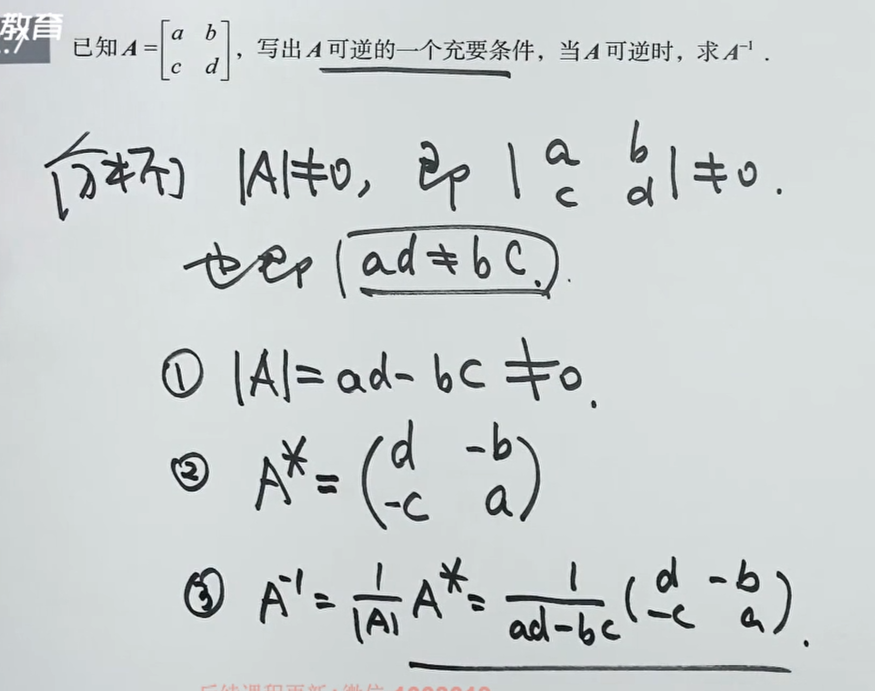 教育
已知A=[a b; c d]，写出A可逆的一个充要条件，当A可逆时，求A⁻¹．
[分析] |A|≠0, 即 |a b; c d|≠0.
也即 ad≠bc.
① |A|=ad-bc≠0.
② A*=(d -b; -c a)
③ A⁻¹=1/|A| A*=1/(ad-bc) (d -b; -c a).